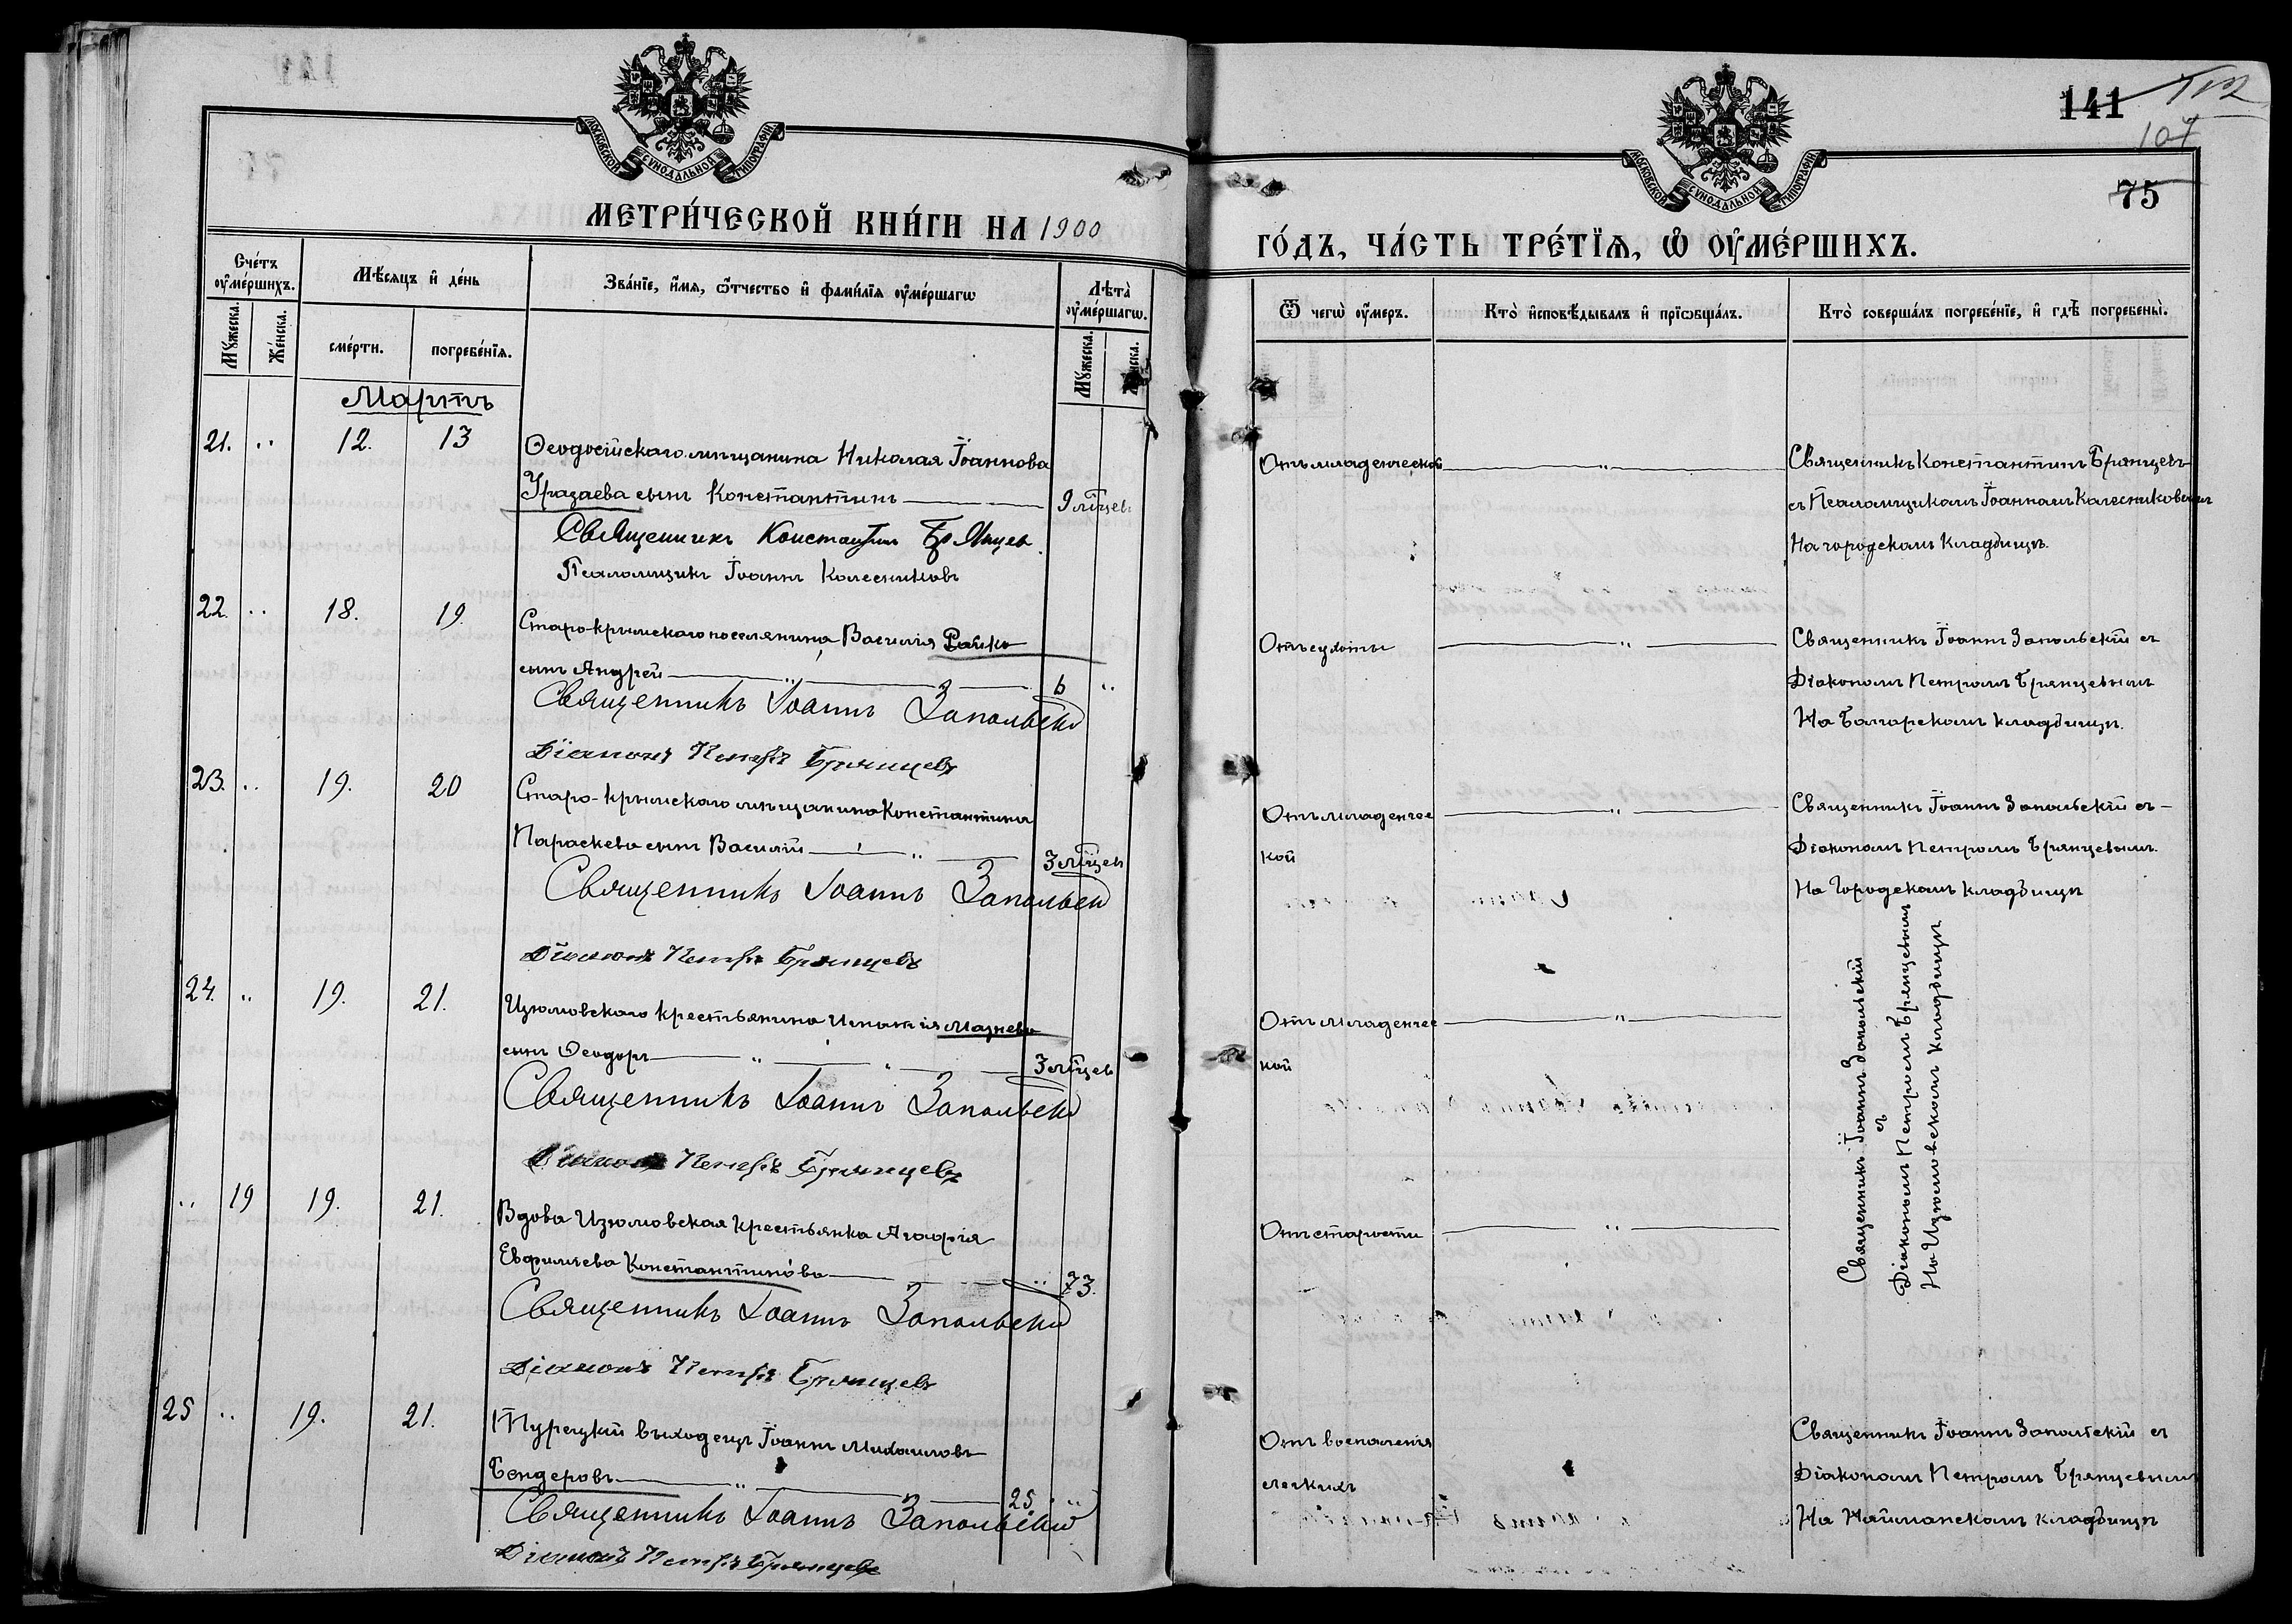 141
112
107
75
МОСКОВСКОЙ СУНОДАЛЬНОЙ ТИПОГРАФІИ
МОСКОВСКОЙ СУНОДАЛЬНОЙ ТИПОГРАФІИ
МЕТРИ́ЧЕСКОЙ КНИ́ГИ НА 1900
ГО́ДЪ, ЧА́СТЬ ТРЕ́ТЇѦ, Ѡ҆ ОУ҆МЕ́РШИХЪ.
Счетъ оумершихъ.
Мѣсяцъ и день
Званіе, имя, отчество и фамилія оумершагω
Лѣта оумершагω.
Мужеска.
Женска.
смерти.
погребенія.
Мужеска.
Женска.
Ѿ чегω оумеръ.
Кто исповѣдывалъ и пріобщалъ.
Кто совершалъ погребеніе, и гдѣ погребены.
Мартъ
21. „ 12. 13 Ѳеодосійскаго мѣщанина Николая Іоаннова
Уразаева сынъ Константинъ 9 мѣцевъ
Священникъ Константинъ Брянцевъ
Псаломщикъ Іоаннъ Колесниковъ
Отъ младенческой „ Священникъ Константинъ Брянцевъ
съ Псаломщикомъ Іоанномъ Калесниковымъ
На городскомъ Кладбищѣ.
22. „ 18. 19. Старо-крымскаго поселянина Василія Райко
сынъ Андрей „ 6 „
Священникъ Іоаннъ Запольскій
Діаконъ Петръ Брянцевъ
Отъ сухоты „ Священникъ Іоаннъ Запольскій съ
Діакономъ Петромъ Брянцевымъ
На Болгарскомъ кладбищѣ.
23. „ 19. 20 Старо-крымскаго мѣщанина Константина
Параскева сынъ Василій „ 3 мѣцев
Священникъ Іоаннъ Запольскій
Діаконъ Петръ Брянцевъ
Отъ младенчес „ Священникъ Іоаннъ Запольскій съ
кой
Діакономъ Петромъ Брянцевымъ.
На Городскомъ кладбищѣ
24. „ 19. 21. Изюмовскаго крестьянина Игнатія Мазнева
сынъ Ѳеодоръ „ 3 мѣцев
Священникъ Іоаннъ Запольскій
Діаконъ Петръ Брянцевъ
Отъ младенчес „
кой
Священникъ Іоаннъ Запольскій
съ
Діакономъ Петромъ Брянцевымъ
На Изюмовскомъ кладбищѣ
„ 19 19. 21. Вдова Изюмовская крестьянка Агафія
Евфимьева Константинова „ 73.
Священникъ Іоаннъ Запольскій
Діаконъ Петръ Брянцевъ
Отъ старости „
25 „ 19. 21. Турецкій выходецъ Іоаннъ Михаиловъ
Бендеровъ „ 25. „
Священникъ Іоаннъ Запольскій
Діаконъ Петръ Брянцевъ
Отъ воспаленія
легкихъ
Священникъ Іоаннъ Запольскій съ
Діакономъ Петромъ Брянцевымъ
На Найманскомъ кладбищѣ